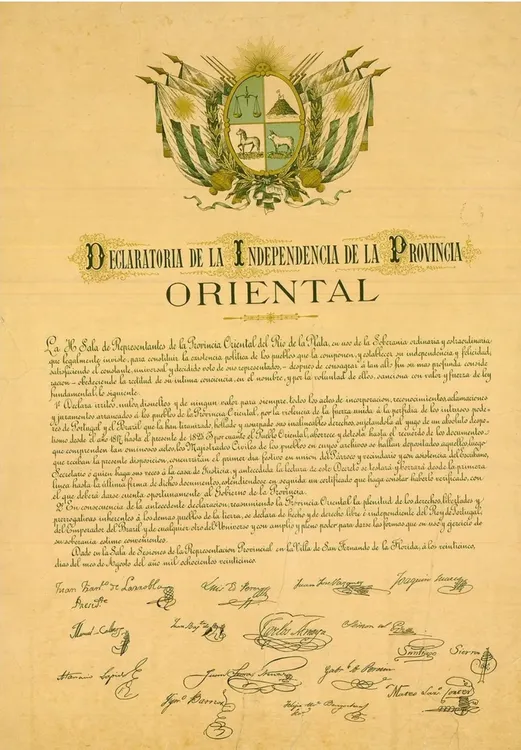 DECLARATORIA DE LA INDEPENDENCIA DE LA PROVINCIA
ORIENTAL
La H. Sala de Representantes de la Provincia Oriental del Río de la Plata, en uso de la Soberanía ordinaria y estraordinaria
que legalmente inviste, para constituir la existencia política de los pueblos que la componen, y establecer su independencia y felicidad,
satisfaciendo el constante, universal y decidido voto de sus representados,—después de consagrar á tan alto fin su mas profunda conside
racion—obedeciendo la rectitud de su íntima conciencia, en el nombre, y por la voluntad de ellos, sanciona con valor y fuerza de ley
fundamental, lo siguiente:
1º Declara írritos, nulos, disueltos y de ningun valor para siempre, todos los actos de incorporacion, reconocimientos, aclamaciones
y juramentos arrancados á los pueblos de la Provincia Oriental, por la violencia de la fuerza unida á la perfidia de los intrusos pode-
res de Portugal y el Brasil que la han tiranizado, hollado y usurpado sus inalienables derechos, sujetándola al yugo de un absoluto despo-
tismo desde el año 1817 hasta el presente de 1825. Y por cuanto el Pueblo Oriental, aborrece y detesta hasta el recuerdo de los documentos
que comprenden tan ominosos actos, los Magistrados Civiles de los pueblos en cuyos archivos se hallan depositados aquellos, luego
que reciban la presente disposicion, concurrirán el primer dia festivo en union del Párroco y vecindario y con asistencia del Escribano,
Secretario ó quien haga sus veces á la casa de Justicia, y antecedida la lectura de este Decreto se testará y borrará desde la primera
línea hasta la última firma de dichos documentos, estendiéndose en seguida un certificado que haga constar haberlo verificado, con
el que deberá darse cuenta oportunamente al Gobierno de la Provincia.
2º En consecuencia de la antecedente declaracion, reasumiendo la Provincia Oriental la plenitud de los derechos, libertades y
prerrogativas inherentes á los demas pueblos de la tierra, se declara de hecho y de derecho libre é independiente del Rey de Portugal,
del Emperador del Brasil y de cualquier otro del Universo y con amplio y pleno poder para darse las formas que en uso y ejercicio de
su soberanía estime convenientes.
Dado en la Sala de Sesiones de la Representacion Provincial en la Villa de San Fernando de la Florida, á los veinticinco
dias del mes de Agosto del año mil ochocientos veinticinco.
Juan Franco de Larrobla
Presidte
Luis E. Perez
Juan José Vazquez
Joaquin Suarez
Manuel Calleros
Carlos Anaya
Simon del Pino
Santiago Sierra
Atanasio Lapido
Gabriel A. Pereira
Ignº Barrios